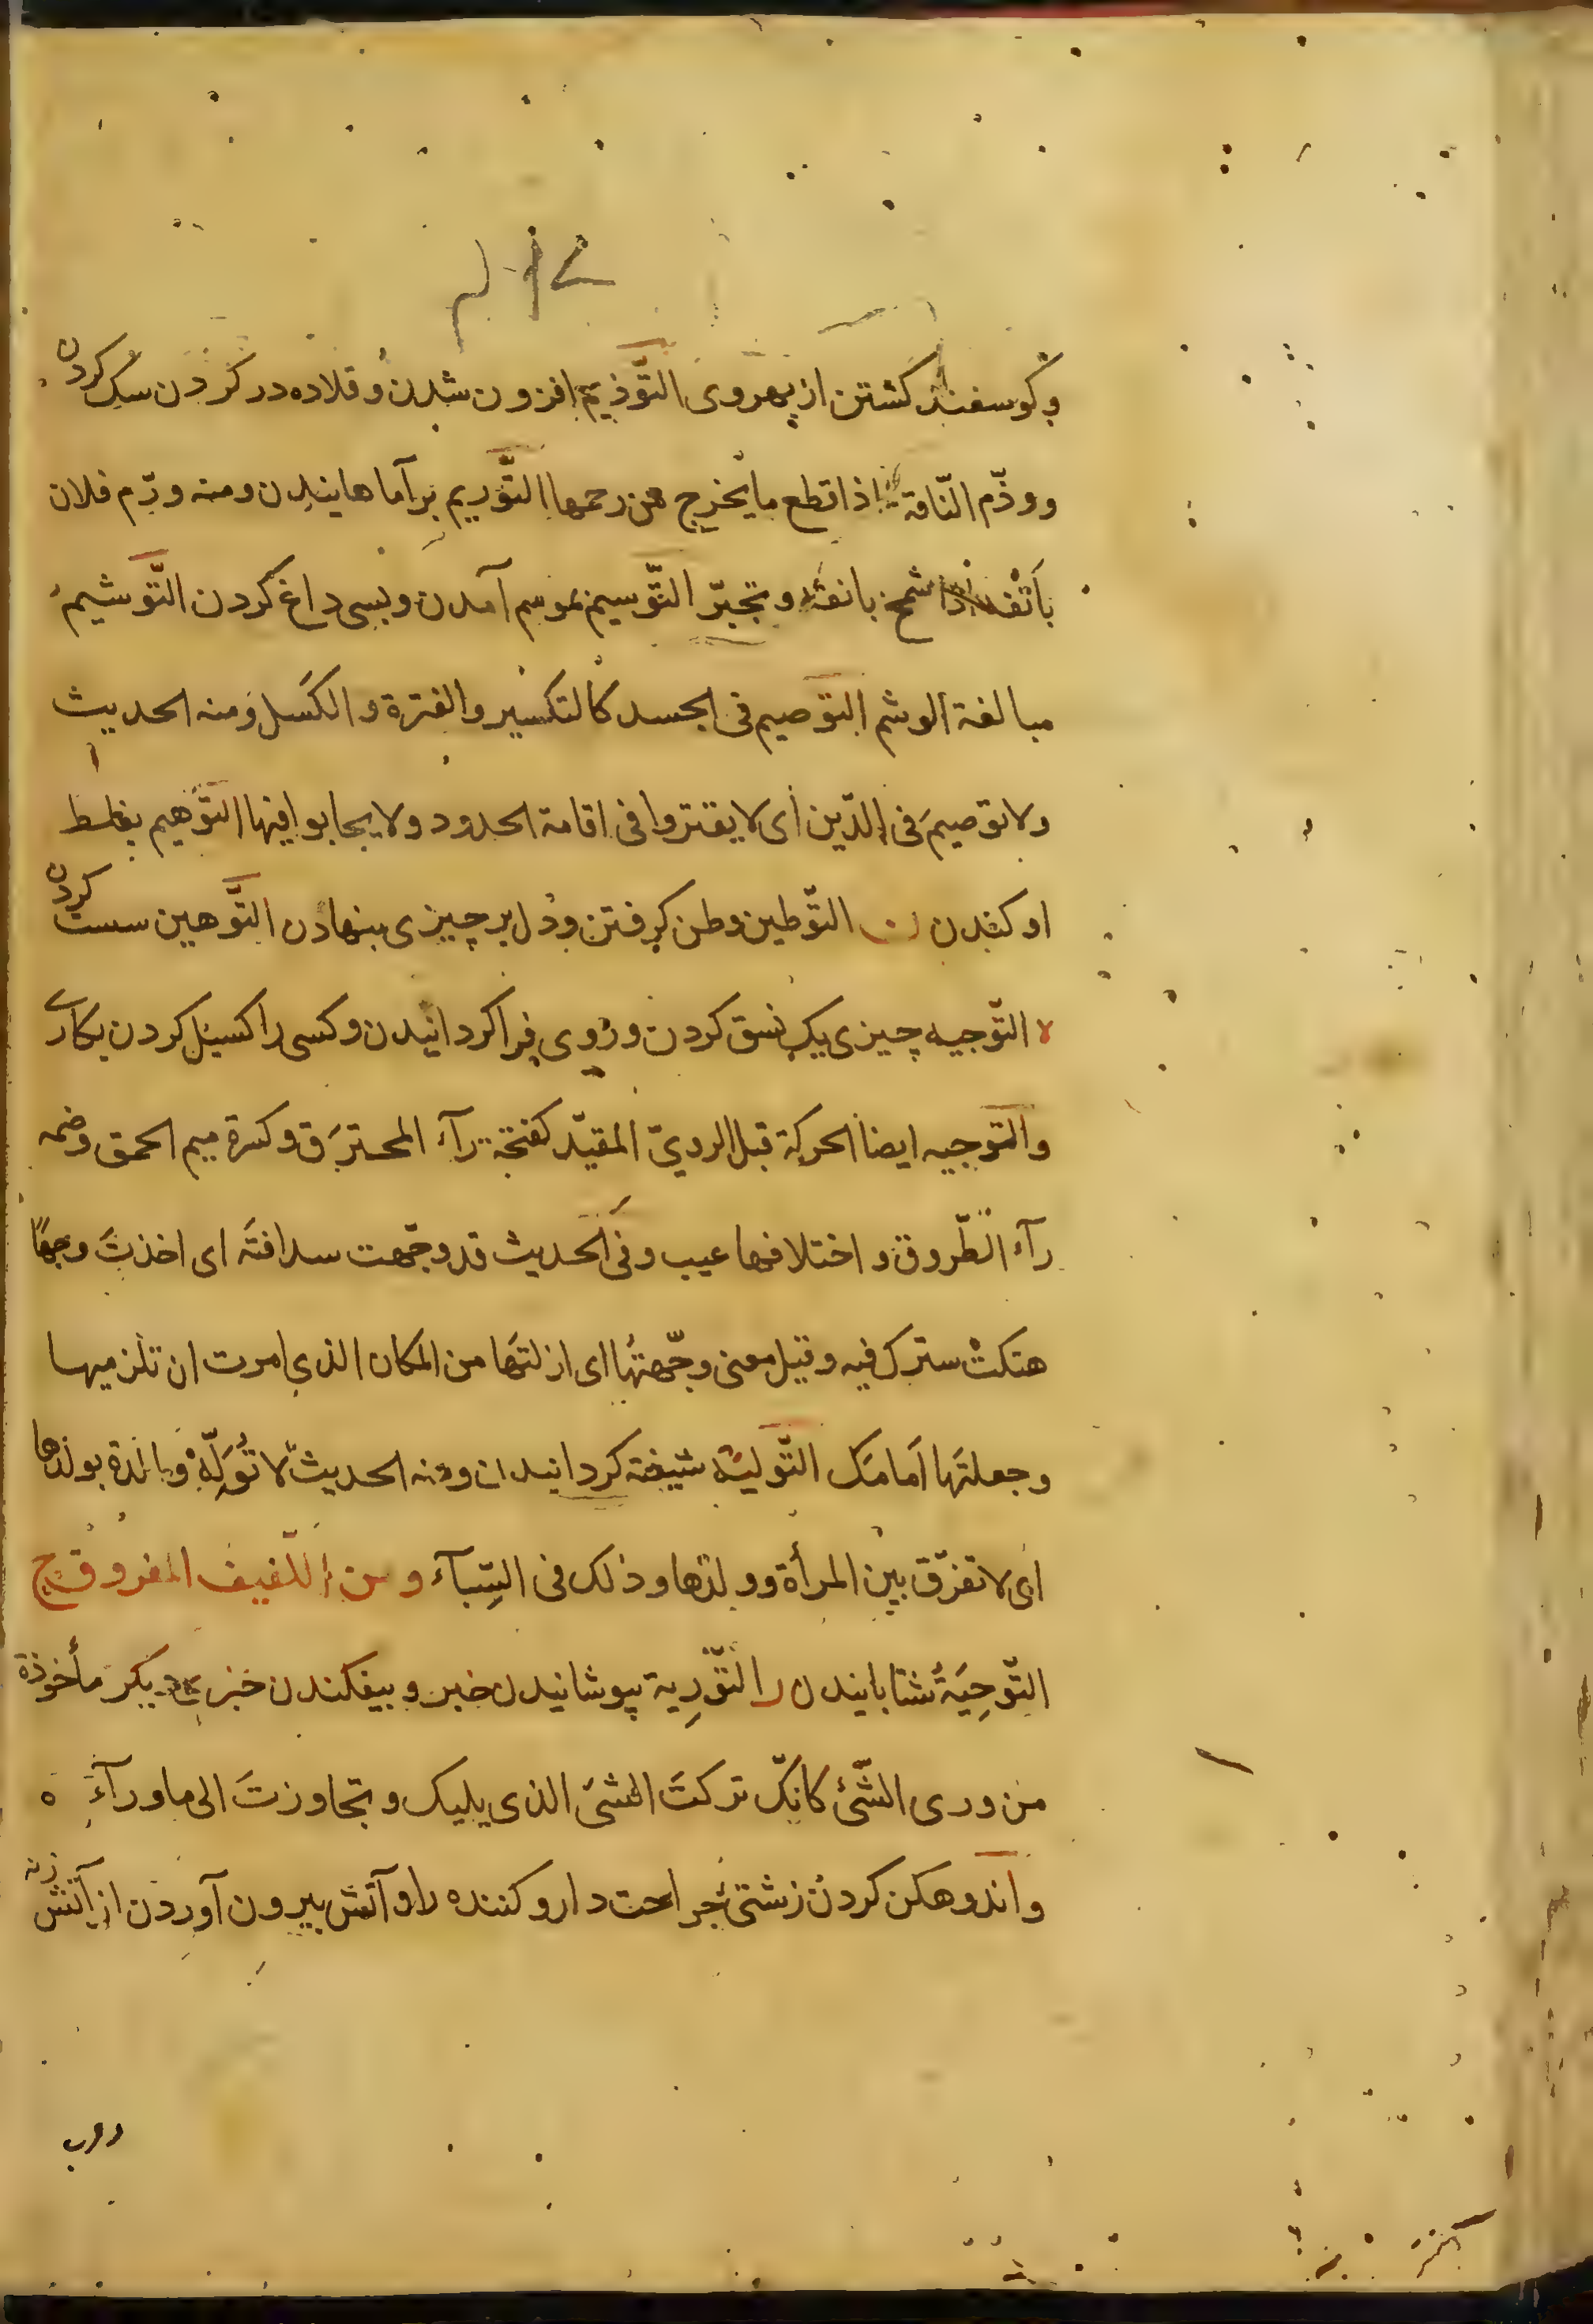 وکوسفند کشتن از بهر وی التّوذیم افزون شدن وقلاده در کردن سک کردن
ووذّم النّاقة اذا قطع ما یخرج من رحمها التّوریم برآماهانیدن ومنه ورّم فلان
بأنفه شمخ بانفه وتجبّر التّوسیم بموسم آمدن وبسی داغ کردن التّوشیم
مبالغة الوشم التّوصیم فی الجسد کالتکسیر والفترة والکسل ومنه الحدیث
ولا توصیم فی الدّین ای لا یفتروا فی اقامة الحدود ولا یحابوا فیها التّوهیم بغلط
اوکندن ن التّوطین وطن کرفتن ودل بر چیزی بنهادن التّوهین سست کردن
ه التّوجیه چیزی یک نسق کردن وروی فرا کردانیدن وکسی را کسیل کردن بکاری
والتّوجیه ایضا الحرکة قبل الرویّ المقیّد کفتحة رآء المخترَق وکسرة میم الحمق وضمه
رآء الطّروق واختلافها عیب وفی الحدیث قد وجّهت سدافته ای اخذت وجها
هتکت سترک فیه وقیل معنی وجّهتها ای ازلتها من المکان الذی امرت ان تلزمیها
وجعلتها امامک التّولیه شیفته کردانیدن ومنه الحدیث لا تُوَلَّهُ والدة بولدها
ای لا تفرّق بین المرأة وولدها وذلک فی السّبآء ومن اللّفیف المفروق ح
التّوحِیَةُ شتابانیدن ر التّوْرِیة بپوشانیدن خبر وبیفکندن خبر دیکر مأخوذة
من وری الشّئ کانّک ترکت الشئ الذی یلیک وتجاوزت الی ما ورآءه
واندوهکن کردن زشتئ جراحت دارو کننده را وآتش بیرون آوردن از آتش زنه